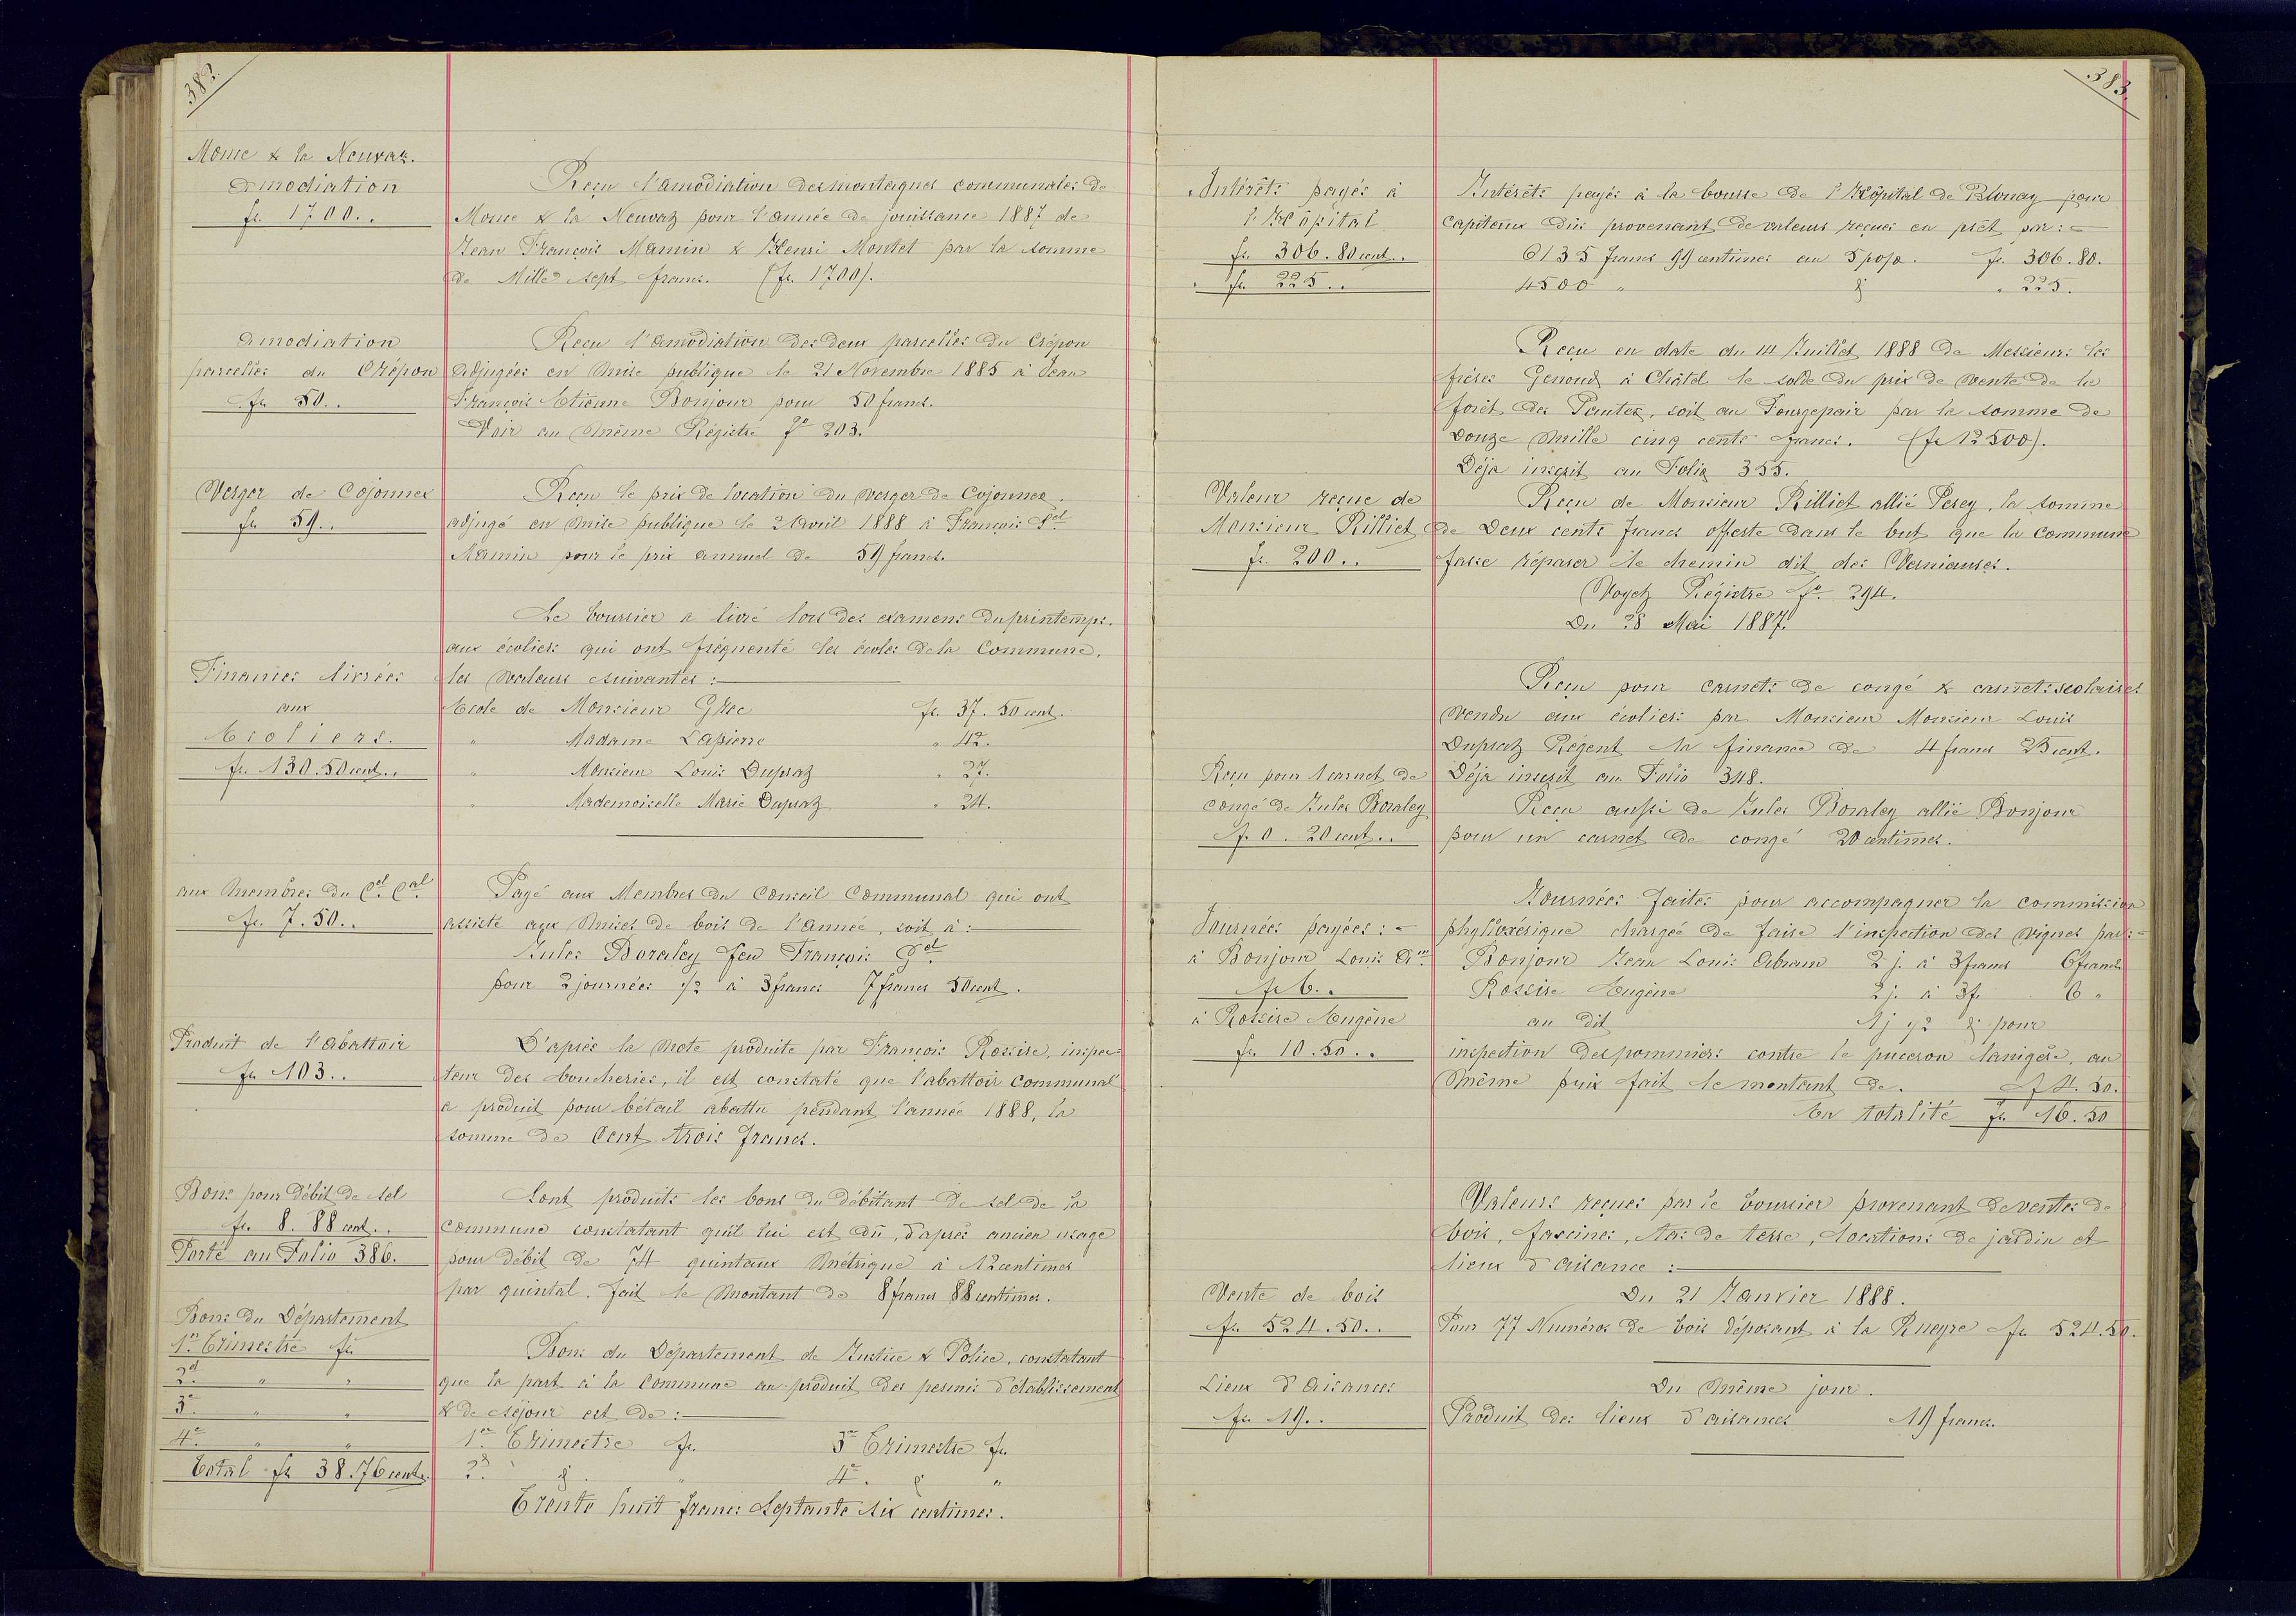 382.
Mouse & la Neuvaz.
Amodiation
fr. 1700..
Reçu l'amodiation des montagnes communales de
Mouse & la Neuvaz pour l'année de jouissance 1887 de
Jean François Mamin & Henri Montet par la somme
de Mille sept francs. (fr. 1700).
Amodiation
parcelles du Crépon
fr. 50..
Reçu l'amodiation des deux parcelles du Crépon
adjugées en mise publique le 21 Novembre 1885 à Jean
François Etienne Bonjour pour 50 francs.
Voir au même Régistre fo 203.
Verger de Cojonnex
fr. 59..
Reçu le prix de location du verger de Cojonnex.
adjugé en mise publique le 2 Avril 1888 à François Fel
Mamin pour le prix annuel de 59 francs.
Le boursier a livré lors des examens du printemps.
aux écoliers qui ont fréquenté les écoles de la Commune,
Finances livrées
aux
Ecoliers.
fr. 130.50 cent..
les valeurs suivantes :
Ecole de Monsieur Grec fr. 37.50 cent.
" Madame Lapierre " 42.
" Monsieur Louis Dupraz " 27.
" Mademoiselle Marie Dupraz " 24.
aux Membres du Cel Cal
fr. 7.50..
Payé aux Membres du Conseil Communal qui ont
assisté aux mises de bois de l'année, soit à :
Jules Boraley feu François Gel
pour 2 journées 1/2 à 3 francs 7 francs 50 cent.
Produit de l'abattoir
fr. 103..
D'après la note produite par François Rossire, inspec=
teur des boucheries, il est constaté que l'abattoir communal
a produit pour bétail abattu pendant l'année 1888, la
somme de Cent trois francs.
Bons pour débit de sel
fr. 8.88 cent..
Porté au Folio 386.
Sont produits les bons du débitant de sel de la
commune constatant qu'il lui est dû, d'après ancien usage
pour débit de 74 quintaux métrique à 12 centimes
par quintal. fait le montant de 8 francs 88 centimes.
Bons du Département
1er Trimestre fr.
2d " "
3e " "
4e " "
Total fr. 38.76 cent.
Bons du Département de Justice & Police, constatant
que la part à la Commune au produit des permis d'établissement
& de séjour est de :
1er Trimestre fr. 3e Trimestre fr.
2d " " 4e " "
Trente huit francs Septante six centimes.
383.
Intérêts payés à
l'Hôpital
fr. 306.80 cent..
fr. 225..
Intérêts payés à la bourse de l'Hôpital de Blonay pour
capitaux dûs provenant de valeurs reçues en prêt par : =
6135 francs 99 centimes au 5 p%. fr. 306.80.
4500 " " " 225.
Reçu en date du 14 Juillet 1888 de Messieurs les
frères Genoud à Châtel le solde du prix de vente de la
forêt des Pautex, soit au Fourgepair par la somme de
Douze mille cinq cents francs. (fr 12500).
Déja inscrit au Folio 355.
Valeur reçue de
Monsieur Rilliet
fr. 200..
Reçu de Monsieur Rilliet allié Perey, la somme
de Deux cents francs offerte dans le but que la commune
fasse réparer le chemin dit des Verniauses.
Voyez Régistre fo 294.
Du 28 Mai 1887.
Reçu pour carnets de congé & carnets scolaires
vendu aux écoliers par Monsieur Monsieur Louis
Dupraz Régent la finance de 4 francs 25 cent.
Déja inscrit au Folio 348.
Reçu pour 1 carnet de
congé de Jules Boraley
fr. 0.20 cent..
Reçu aussi de Jules Boraley allié Bonjour
pour un carnet de congé 20 centimes.
Journées payées : =
à Bonjour Louis Am
fr 6..
à Rossire Eugène
fr. 10.50..
Journées faites pour accompagner la commission
phylloxérique chargée de faire l'inspection des vignes par : =
Bonjour Jean Louis Abram 2 j. à 3 francs 6 francs
Rossire Eugène 2 j. à 3 f. 6 "
au dit 1 j 1/2 " pour
inspection des pommiers contre le puceron lanigère, au
même prix fait le montant de. f 4.50.
En totalité fr. 16.50
Valeurs reçues par le boursier provenant de ventes de
bois, fascines, tas de terre, locations de jardin et
lieux d'aisance :
Vente de bois
fr. 524.50..
Du 21 Janvier 1888.
Pour 77 Numéros de bois déposant à la Rueyre fr. 524.50.
Lieux d'aisances
fr. 19..
Du même jour.
Produit des lieux d'aisances 19 francs.